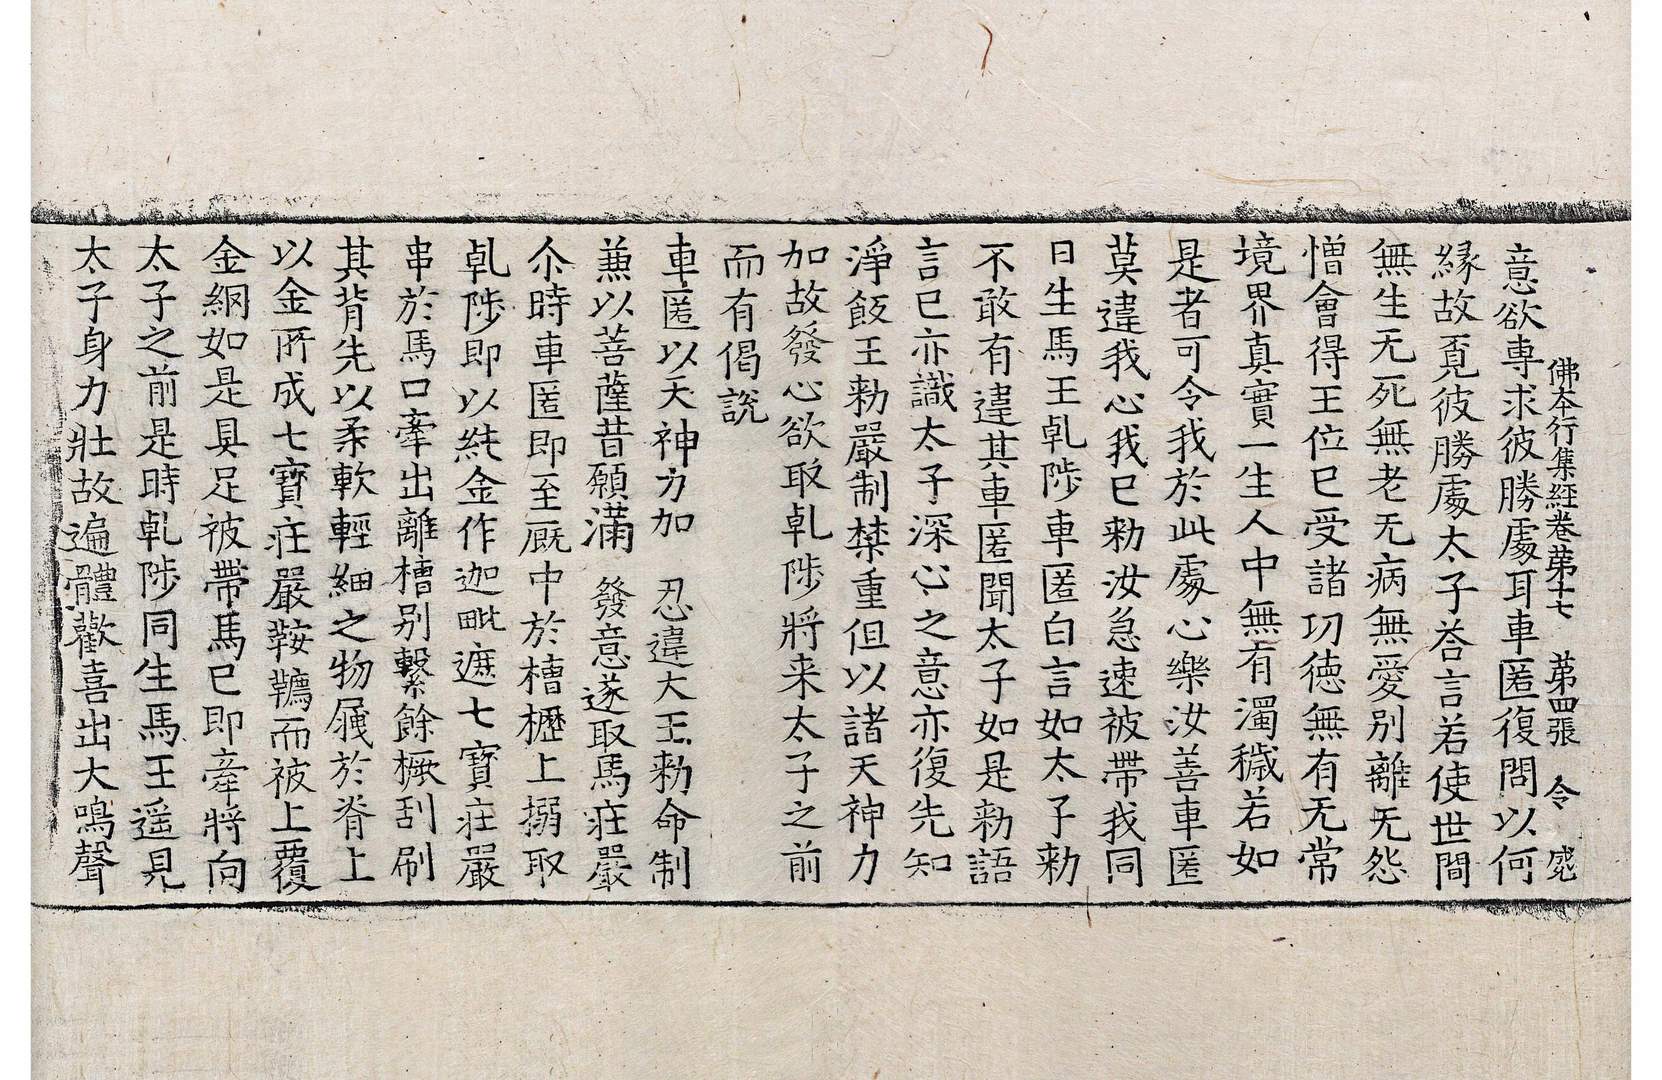 佛本行集經卷第十七　第四張　令　宛
意欲專求彼勝處耳車匿復問以何
縁故覔彼勝處太子荅言若使世間
無生无死無老无病無愛別離无怨
憎會得王位已受諸功徳無有无常
境界真實一生人中無有濁穢若如
是者可令我於此處心樂汝善車匿
莫違我心我已勑汝急速被帶我同
日生馬王乹陟車匿白言如太子勑
不敢有違其車匿聞太子如是勑語
言已亦識太子深心之意亦復先知
淨飯王勑嚴制禁重但以諸天神力
加故發心欲取乹陟將来太子之前
而有偈說
車匿以天神力加　忍違大王勑命制
兼以菩薩昔願滿　發意遂取馬莊嚴
尒時車匿即至厩中於槽櫪上搦取
乹陟即以純金作迦毗遮七寶莊嚴
串於馬口牽出離槽別繫餘橛刮刷
其背先以柔軟輕細之物屧於脊上
以金所成七寶莊嚴鞍韉而被上覆
金網如是具足被帶馬已即牽將向
太子之前是時乹陟同生馬王遥見
太子身力壯故遍體歡喜出大鳴聲